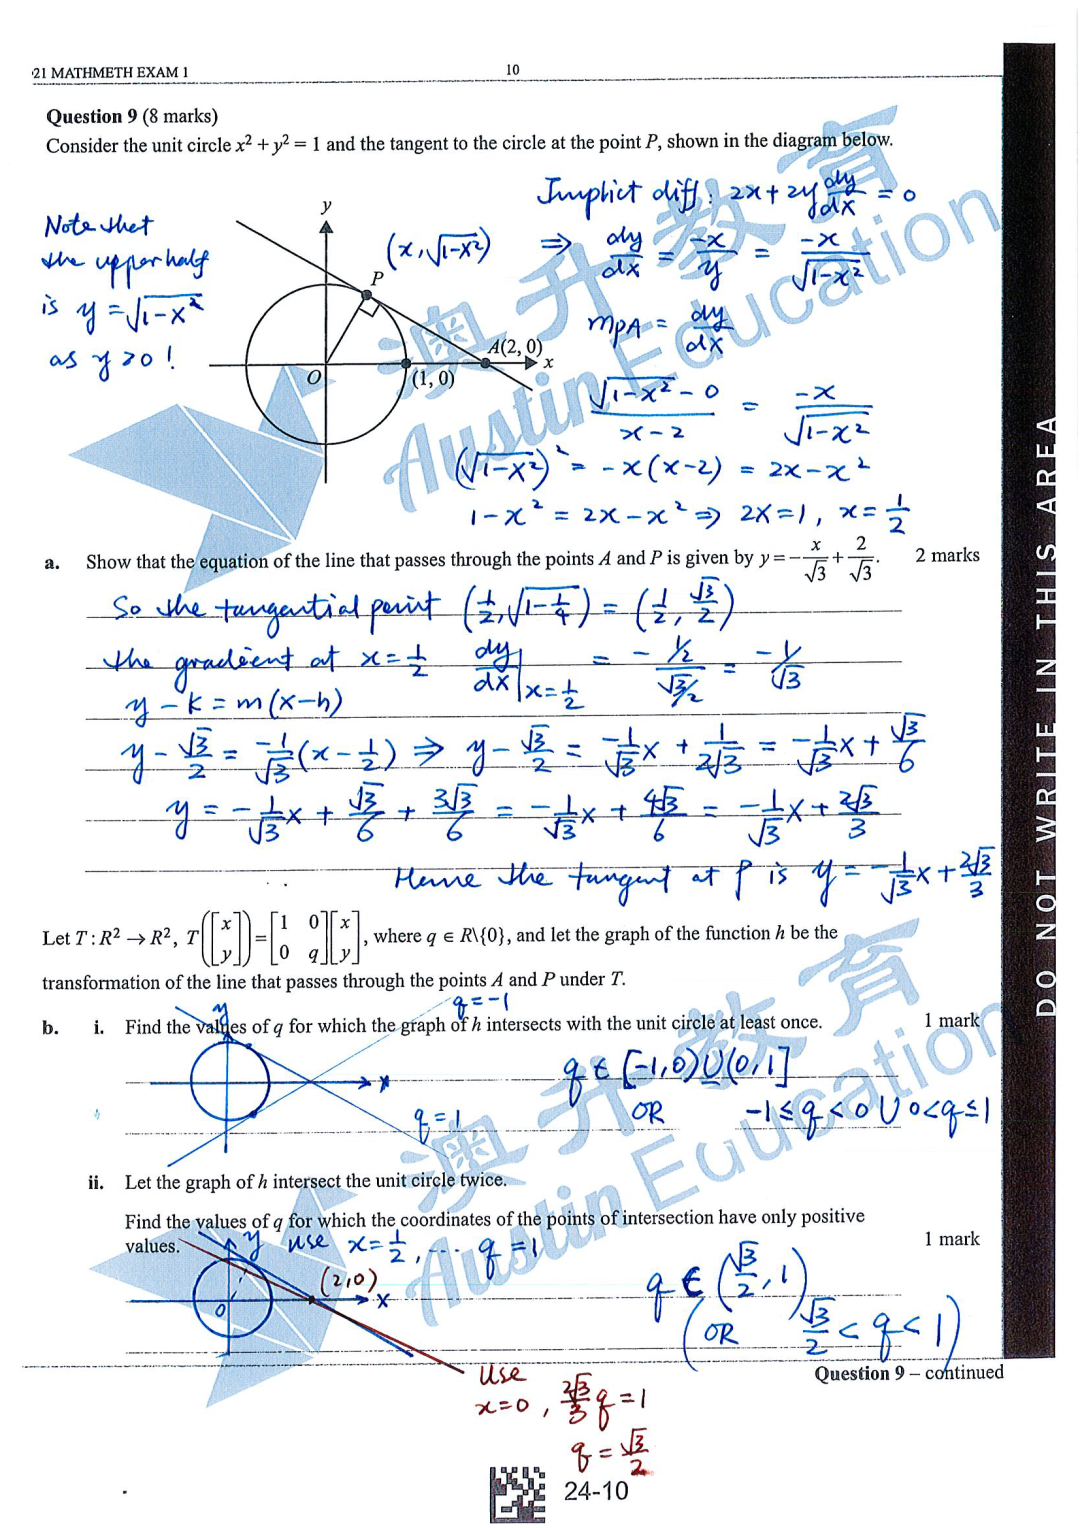 21 MATHMETH EXAM 1
10
Question 9 (8 marks)
Consider the unit circle x² + y² = 1 and the tangent to the circle at the point P, shown in the diagram below.
Implict diff: 2x + 2y dy/dx = 0
Note that
the upper half
is y = √(1-x²)
as y > 0 !
y
(x, √(1-x²))
⇒ dy/dx = -x/y = -x/√(1-x²)
P
mPA = dy/dx
A(2, 0)
x
O
(1, 0)
(√(1-x²) - 0)/(x-2) = -x/√(1-x²)
(√(1-x²))² = -x(x-2) = 2x-x²
1-x² = 2x-x² ⇒ 2x=1, x = 1/2
a. Show that the equation of the line that passes through the points A and P is given by y = -x/√3 + 2/√3. 2 marks
So the tangential point (1/2, √(1-1/4)) = (1/2, √3/2)
the gradient at x = 1/2 dy/dx|x=1/2 = -(1/2)/(√3/2) = -1/√3
y - k = m(x-h)
y - √3/2 = -1/√3 (x - 1/2) ⇒ y - √3/2 = -1/√3 x + 1/2√3 = -1/√3 x + √3/6
y = -1/√3 x + √3/6 + 3√3/6 = -1/√3 x + 4√3/6 = -1/√3 x + 2√3/3
Hence the tangent at P is y = -1/√3 x + 2√3/3
Let T : R² → R², T([x y]) = [1 0 0 q][x y], where q ∈ R\{0}, and let the graph of the function h be the
transformation of the line that passes through the points A and P under T.
q = -1
b. i. Find the values of q for which the graph of h intersects with the unit circle at least once. 1 mark
y
x
q = 1
q ∈ [-1, 0) ∪ (0, 1]
OR -1 ≤ q < 0 ∪ 0 < q ≤ 1
ii. Let the graph of h intersect the unit circle twice.
Find the values of q for which the coordinates of the points of intersection have only positive
values. 1 mark
y use x = 1/2, ... q = 1
(2,0)
x
O
q ∈ (√3/2, 1)
(OR √3/2 < q < 1)
Question 9 – continued
Use
x=0, 2√3/3 q = 1
q = √3/2
24-10
DO NOT WRITE IN THIS AREA
澳升教育
Austin Education
澳升教育
Austin Education